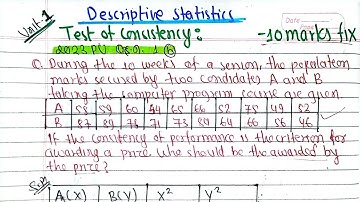 Unit-1
Descriptive statistics
Test of Consistency: -10 marks fix
2023 PU
Q. During the 10 weeks of a session, the population
marks secured by two candidates A and B
taking the computer program course are given
A 58 59 60 54 65 66 52 75 49 52
B 87 89 78 71 73 84 64 66 56 46
If the consistency of performance is the criterion for
awarding a prize. Who should be awarded by
the prize?
A(X) B(Y) X² Y²